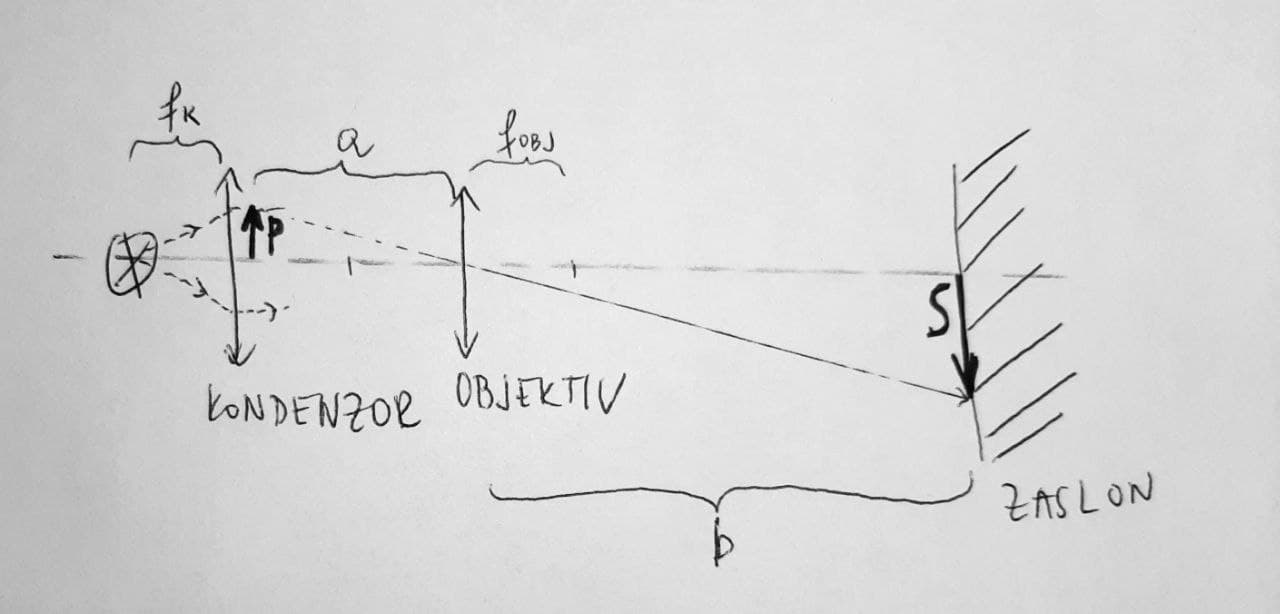 fK
a
fOBJ
P
S
KONDENZOR
OBJEKTIV
b
ZASLON